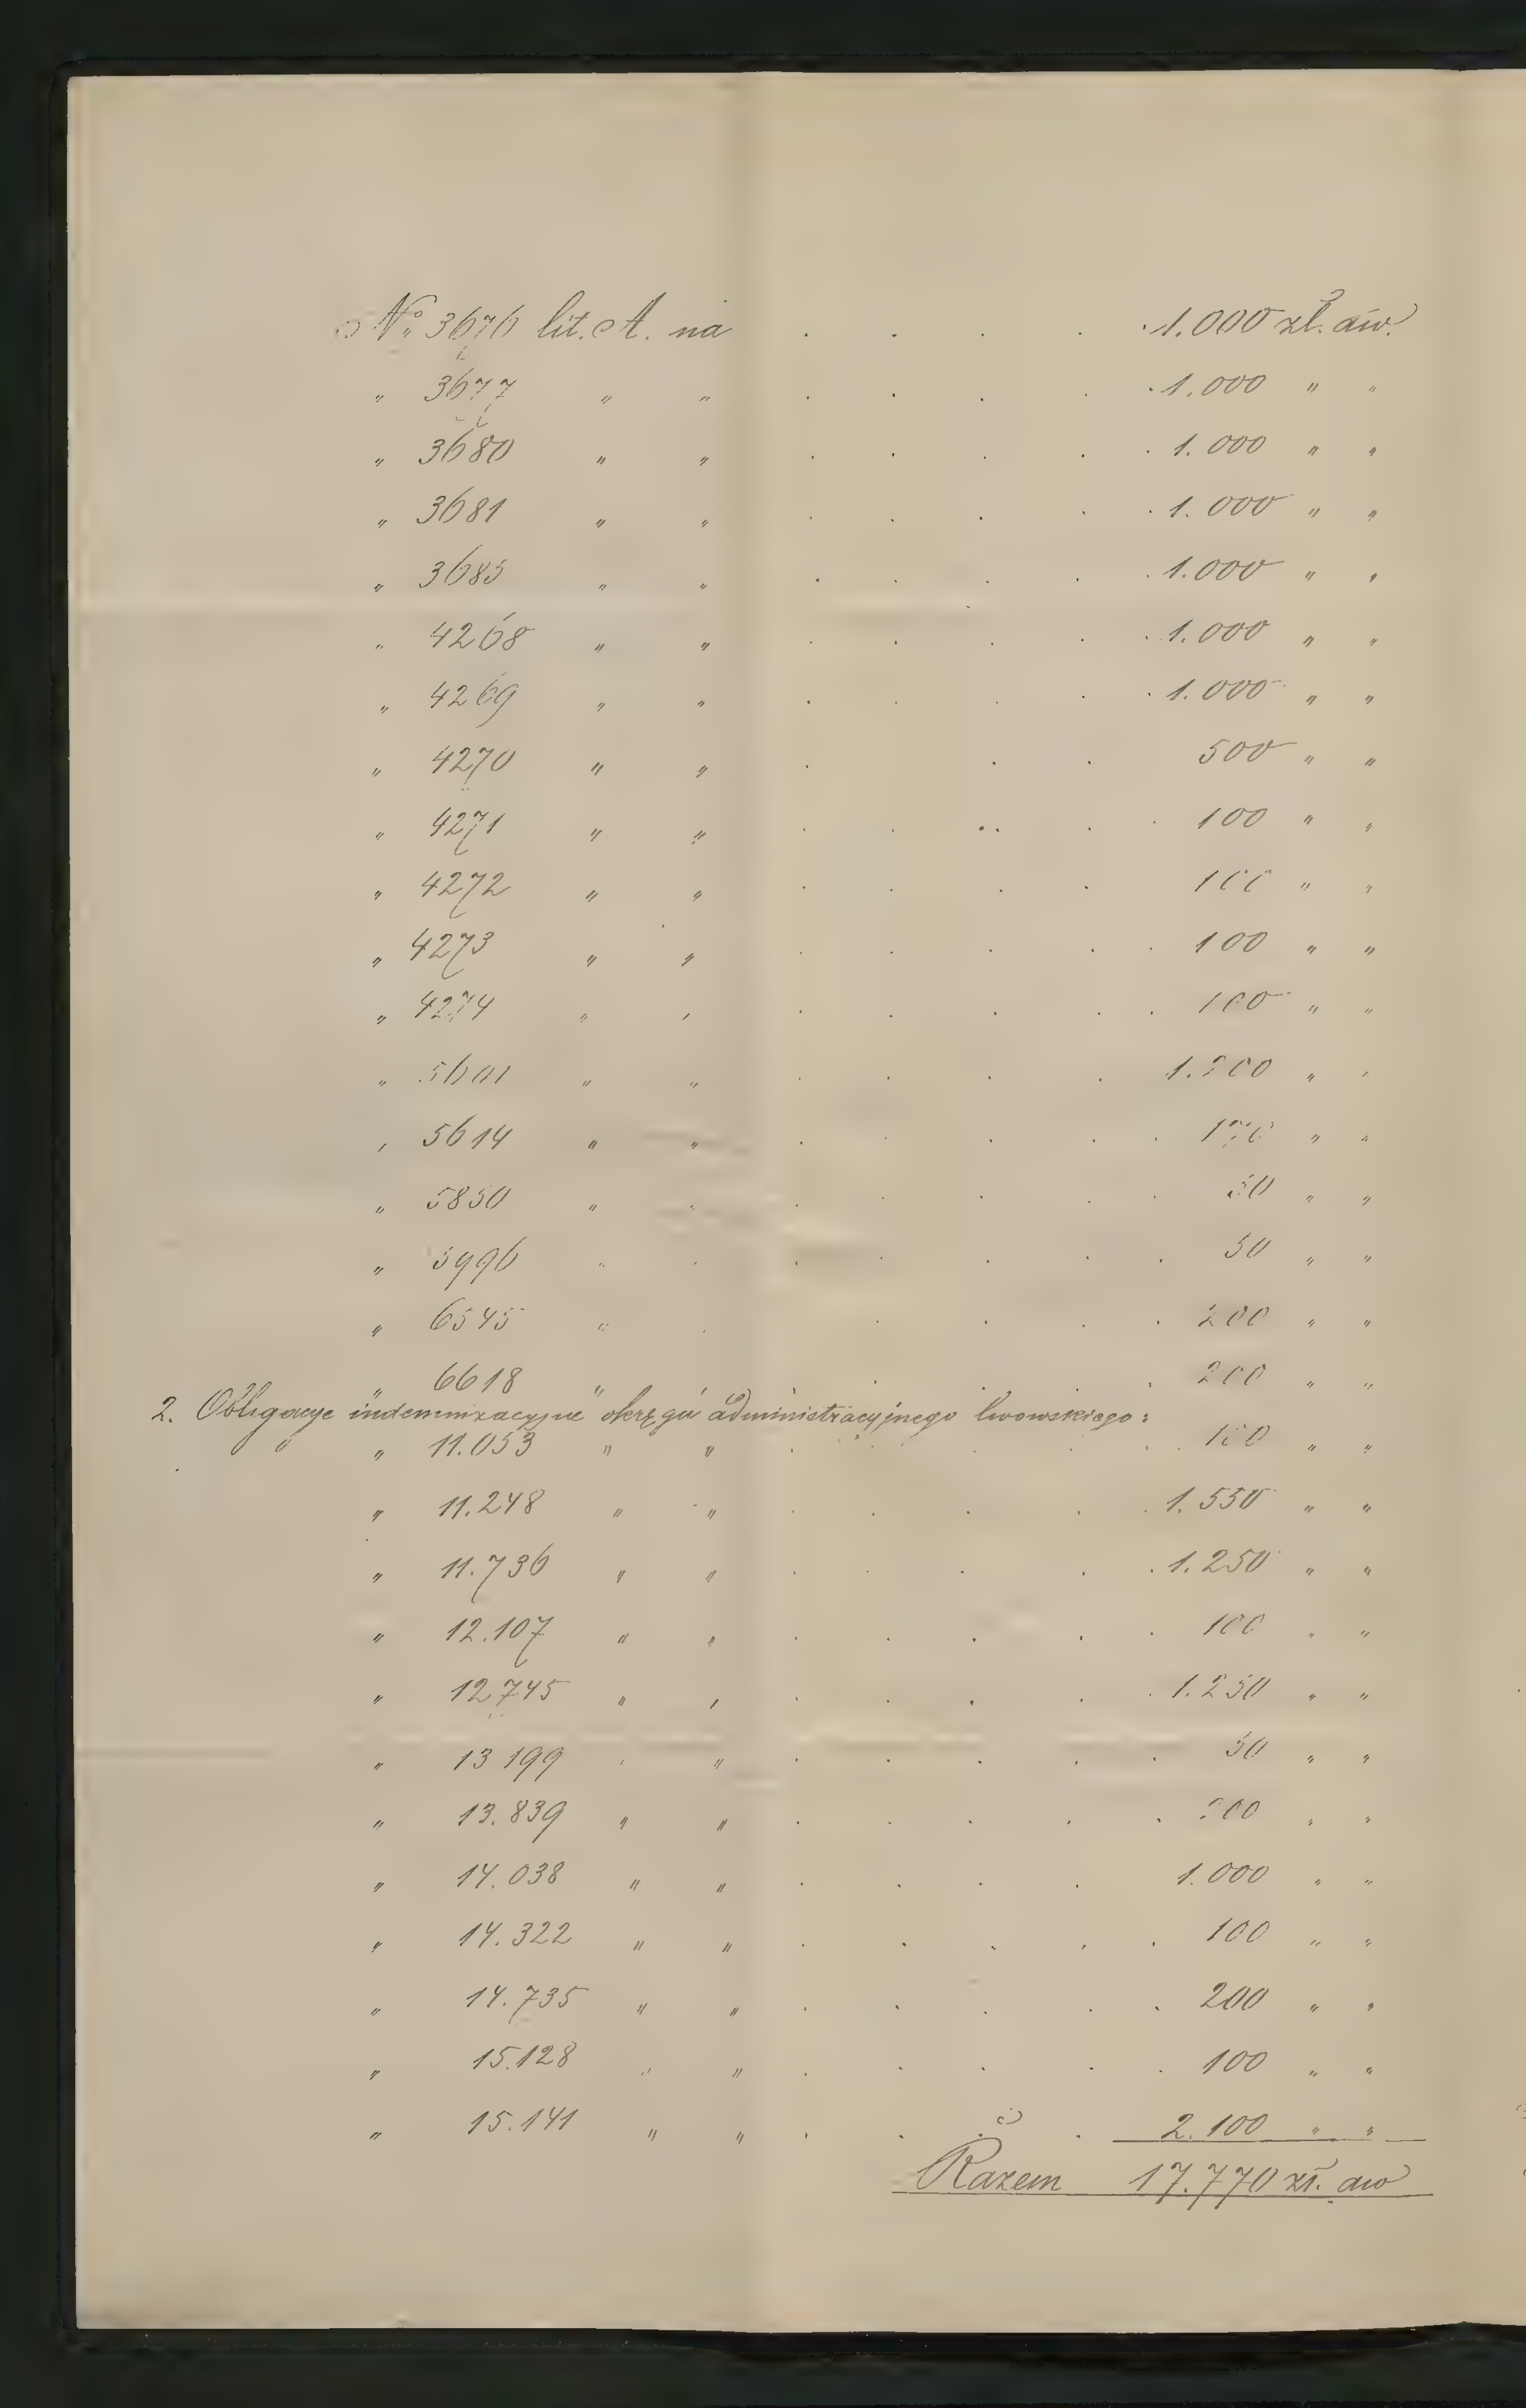 № 3676 lit. A. na . . . . . 1.000 zł. aw.
" 3677 " " . . . . . 1.000 " "
" 3680 " " . . . . . 1.000 " "
" 3681 " " . . . . . 1.000 " "
" 3685 " " . . . . . 1.000 " "
" 4268 " " . . . . . 1.000 " "
" 4269 " " . . . . . 1.000 " "
" 4270 " " . . . 500 " "
" 4271 " " . . . . . 100 " "
" 4272 " " . . . . 100 " "
" 4273 " " . . . . . 100 " "
" 4274 " " . . . . . 100 " "
" 5601 " " . . . . 1.200 " "
" 5614 " " . . . . 170 " "
" 5850 " " . . . . 50 " "
" 5996 " " . . . . . 50 " "
" 6545 " . . . . . 200 " "
" 6618 " " . . . 200 " "
2. Obligacye indemnizacyjne okręgu administracyjnego lwowskiego:
" 11.053 " " . . . . . 100 " "
" 11.248 " " . . . . 1.550 " "
" 11.736 " " . . . . . 1.250 " "
" 12.107 " " . . . . . 100 " "
" 12.745 " " . . . . . 1.250 " "
" 13.199 " " . . . . . 50 " "
" 13.839 " " . . . . . 200 " "
" 14.038 " " . . . . 1.000 " "
" 14.322 " " . . . . . 100 " "
" 14.735 " " . . . . . 200 " "
" 15.128 " " . . . . . 100 " "
" 15.141 " " . . . 2.100 " "
Razem 17.770 zł. aw